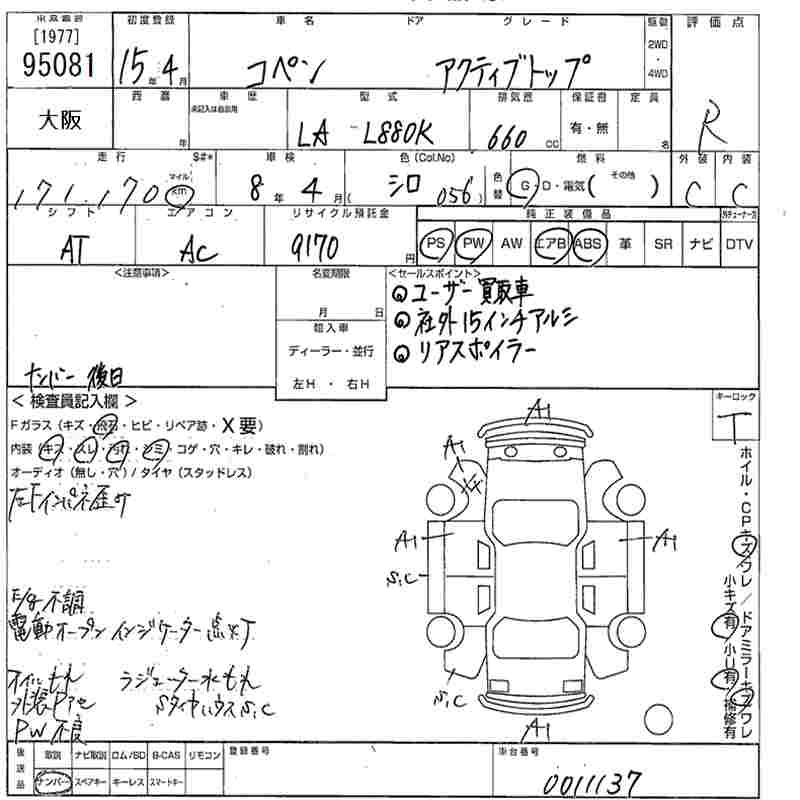 [1977]
95081
大阪
初度登録
15年4月
車名 ドア グレード
コペン アクティブトップ
駆動
2WD
・
4WD
評価点
R
西暦
年
車歴
未記入は自家用
型式
LA - L880K
排気量
660 CC
保証書
有・無
定員
名
走行 S#*
171,170 マイル km
車検
8年4月(
色(Col.No)
シロ 056)
色替
燃料
G・D・電気( その他 )
外装
C
内装
C
シフト
AT
エアコン
AC
リサイクル預託金
9170円
純正装備品
PS PW AW エアB ABS 革 SR ナビ DTV
<注意事項>
ナンバー後日
名変期限
月 日
輸入車
ディーラー・並行
左H・右H
<セールスポイント>
◎ユーザー買取車
◎社外15インチアルミ
◎リアスポイラー
<検査員記入欄>
Fガラス(キズ・飛石・ヒビ・リペア跡・X要)
内装(キズ・スレ・汚れ・シミ・コゲ・穴・キレ・破れ・割れ)
オーディオ(無し・穴)/タイヤ(スタッドレス)
左Fインパネ歪サ
E/g不調
電動オープンインジケーター点灯
オイルもれ ラジエーター水もれ
PW不良
キーロック
T
A1
A1
A1
A1
S,C
S,C
A1
ホイル・CPキズワレ/ドアミラーキズワレ
小キズ有/小U有/補修有
後送品
取説 ナビ取説 ロム/SD B-CAS リモコン
ナンバー スペアキー キーレス スマートキー
登録番号
車台番号
0011137